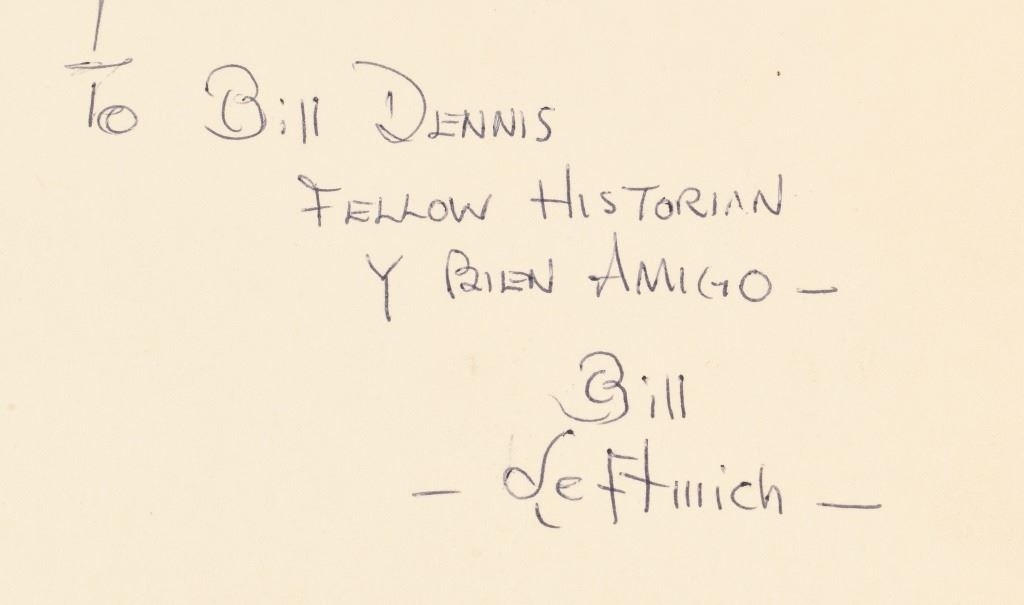 To Bill Dennis
Fellow Historian
Y Bien Amigo —
Bill
— Leftwich —